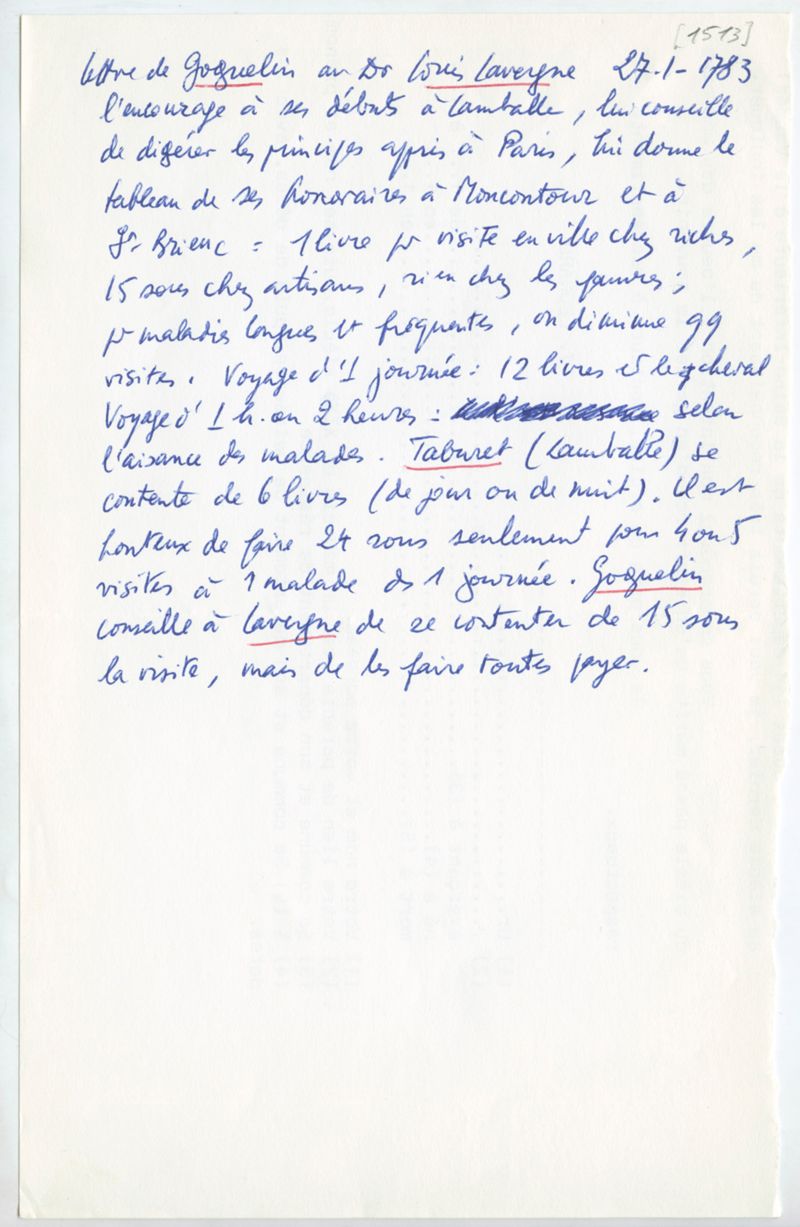 [1513]
lettre de Goguelin au Dr Louis Lavergne 27-1-1783
l'encourage à ses débuts à Lamballe, lui conseille
de digérer les principes appris à Paris, lui donne le
tableau de ses honoraires à Moncontour et à
St. Brieuc = 1 livre pr visite en ville chez riches,
15 sous chez artisans, rien chez les pauvres ;
pr maladies longues et fréquentes, on diminue qq
visites. Voyage d'1 journée : 12 livres et le cheval
Voyage d'1 h. ou 2 heures : selon
l'aisance des malades. Taburet (Lamballe) se
contente de 6 livres (de jour ou de nuit). Il est
honteux de faire 24 sous seulement pour 4 ou 5
visites à 1 malade ds 1 journée. Goguelin
conseille à Lavergne de se contenter de 15 sous
la visite, mais de les faire toutes payer.